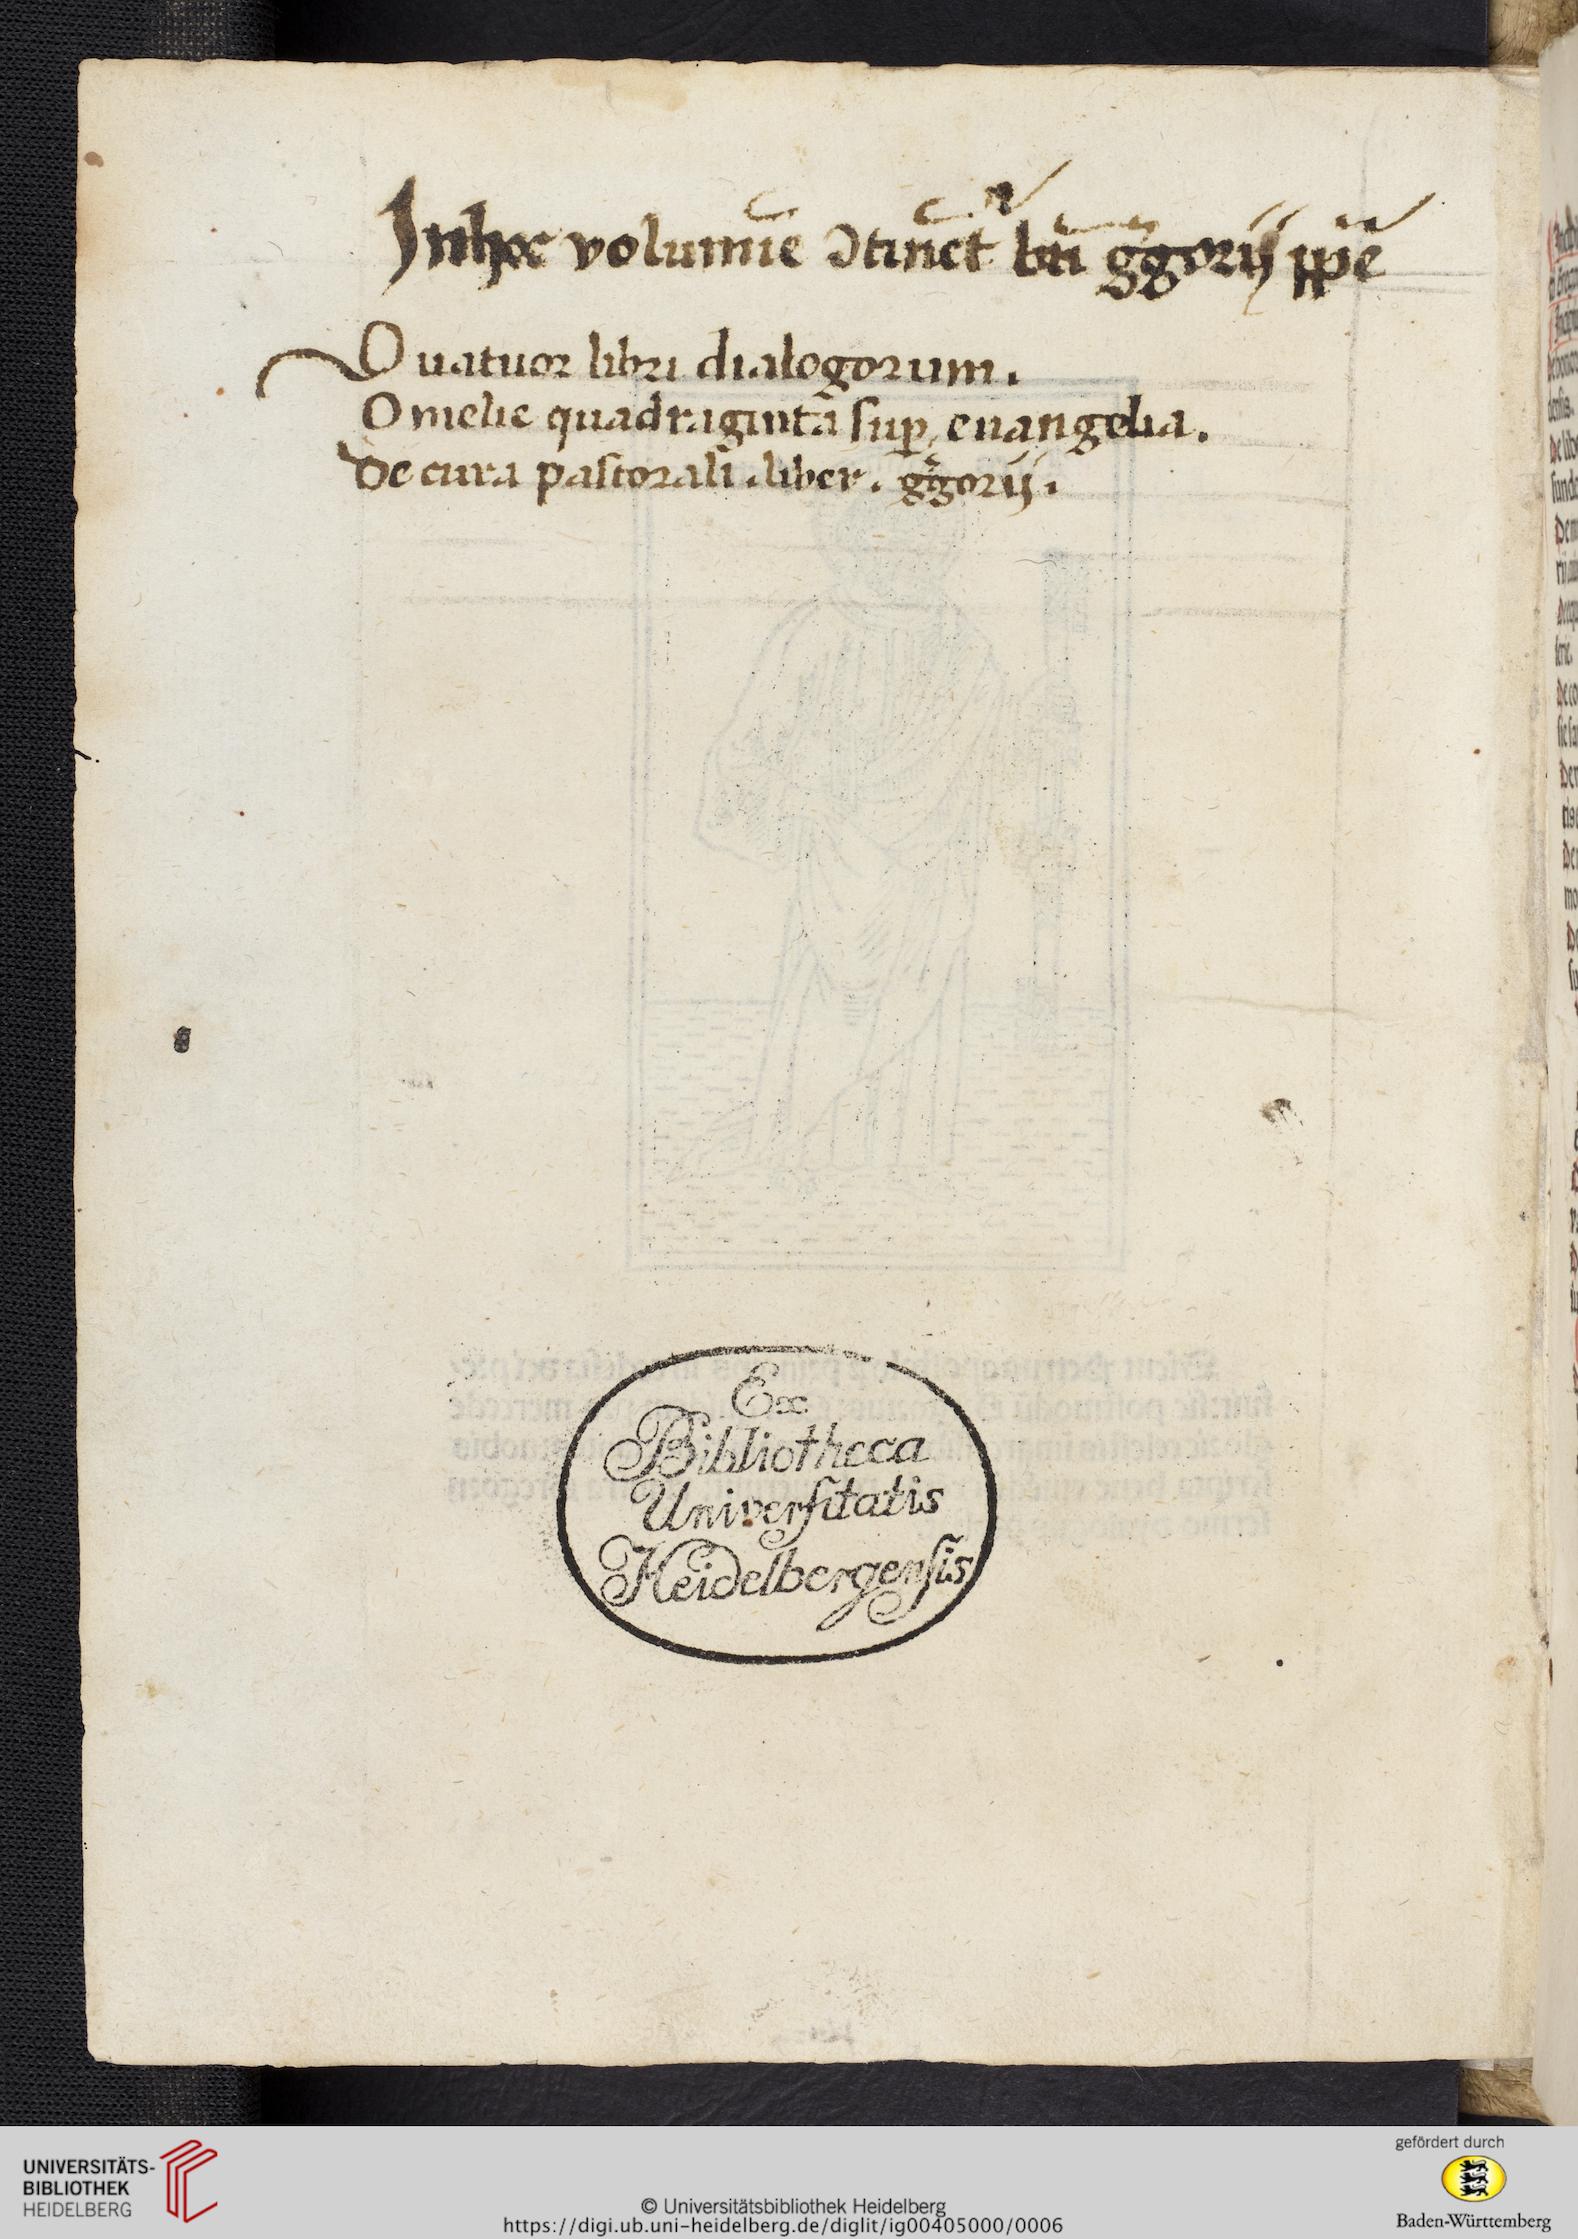 In hoc volumīe ↄtinēt᷑ bti g̅gorij ppe
Quatuor libri dialogorum.
Omelie quadraginta suꝑ euangelia.
De cura pastorali .liber. g̅gorij.
Ex
Bibliotheca
Univerſitatis
Heidelbergenſis
UNIVERSITÄTS-
BIBLIOTHEK
HEIDELBERG
© Universitätsbibliothek Heidelberg
https://digi.ub.uni-heidelberg.de/diglit/ig00405000/0006
gefördert durch
Baden-Württemberg